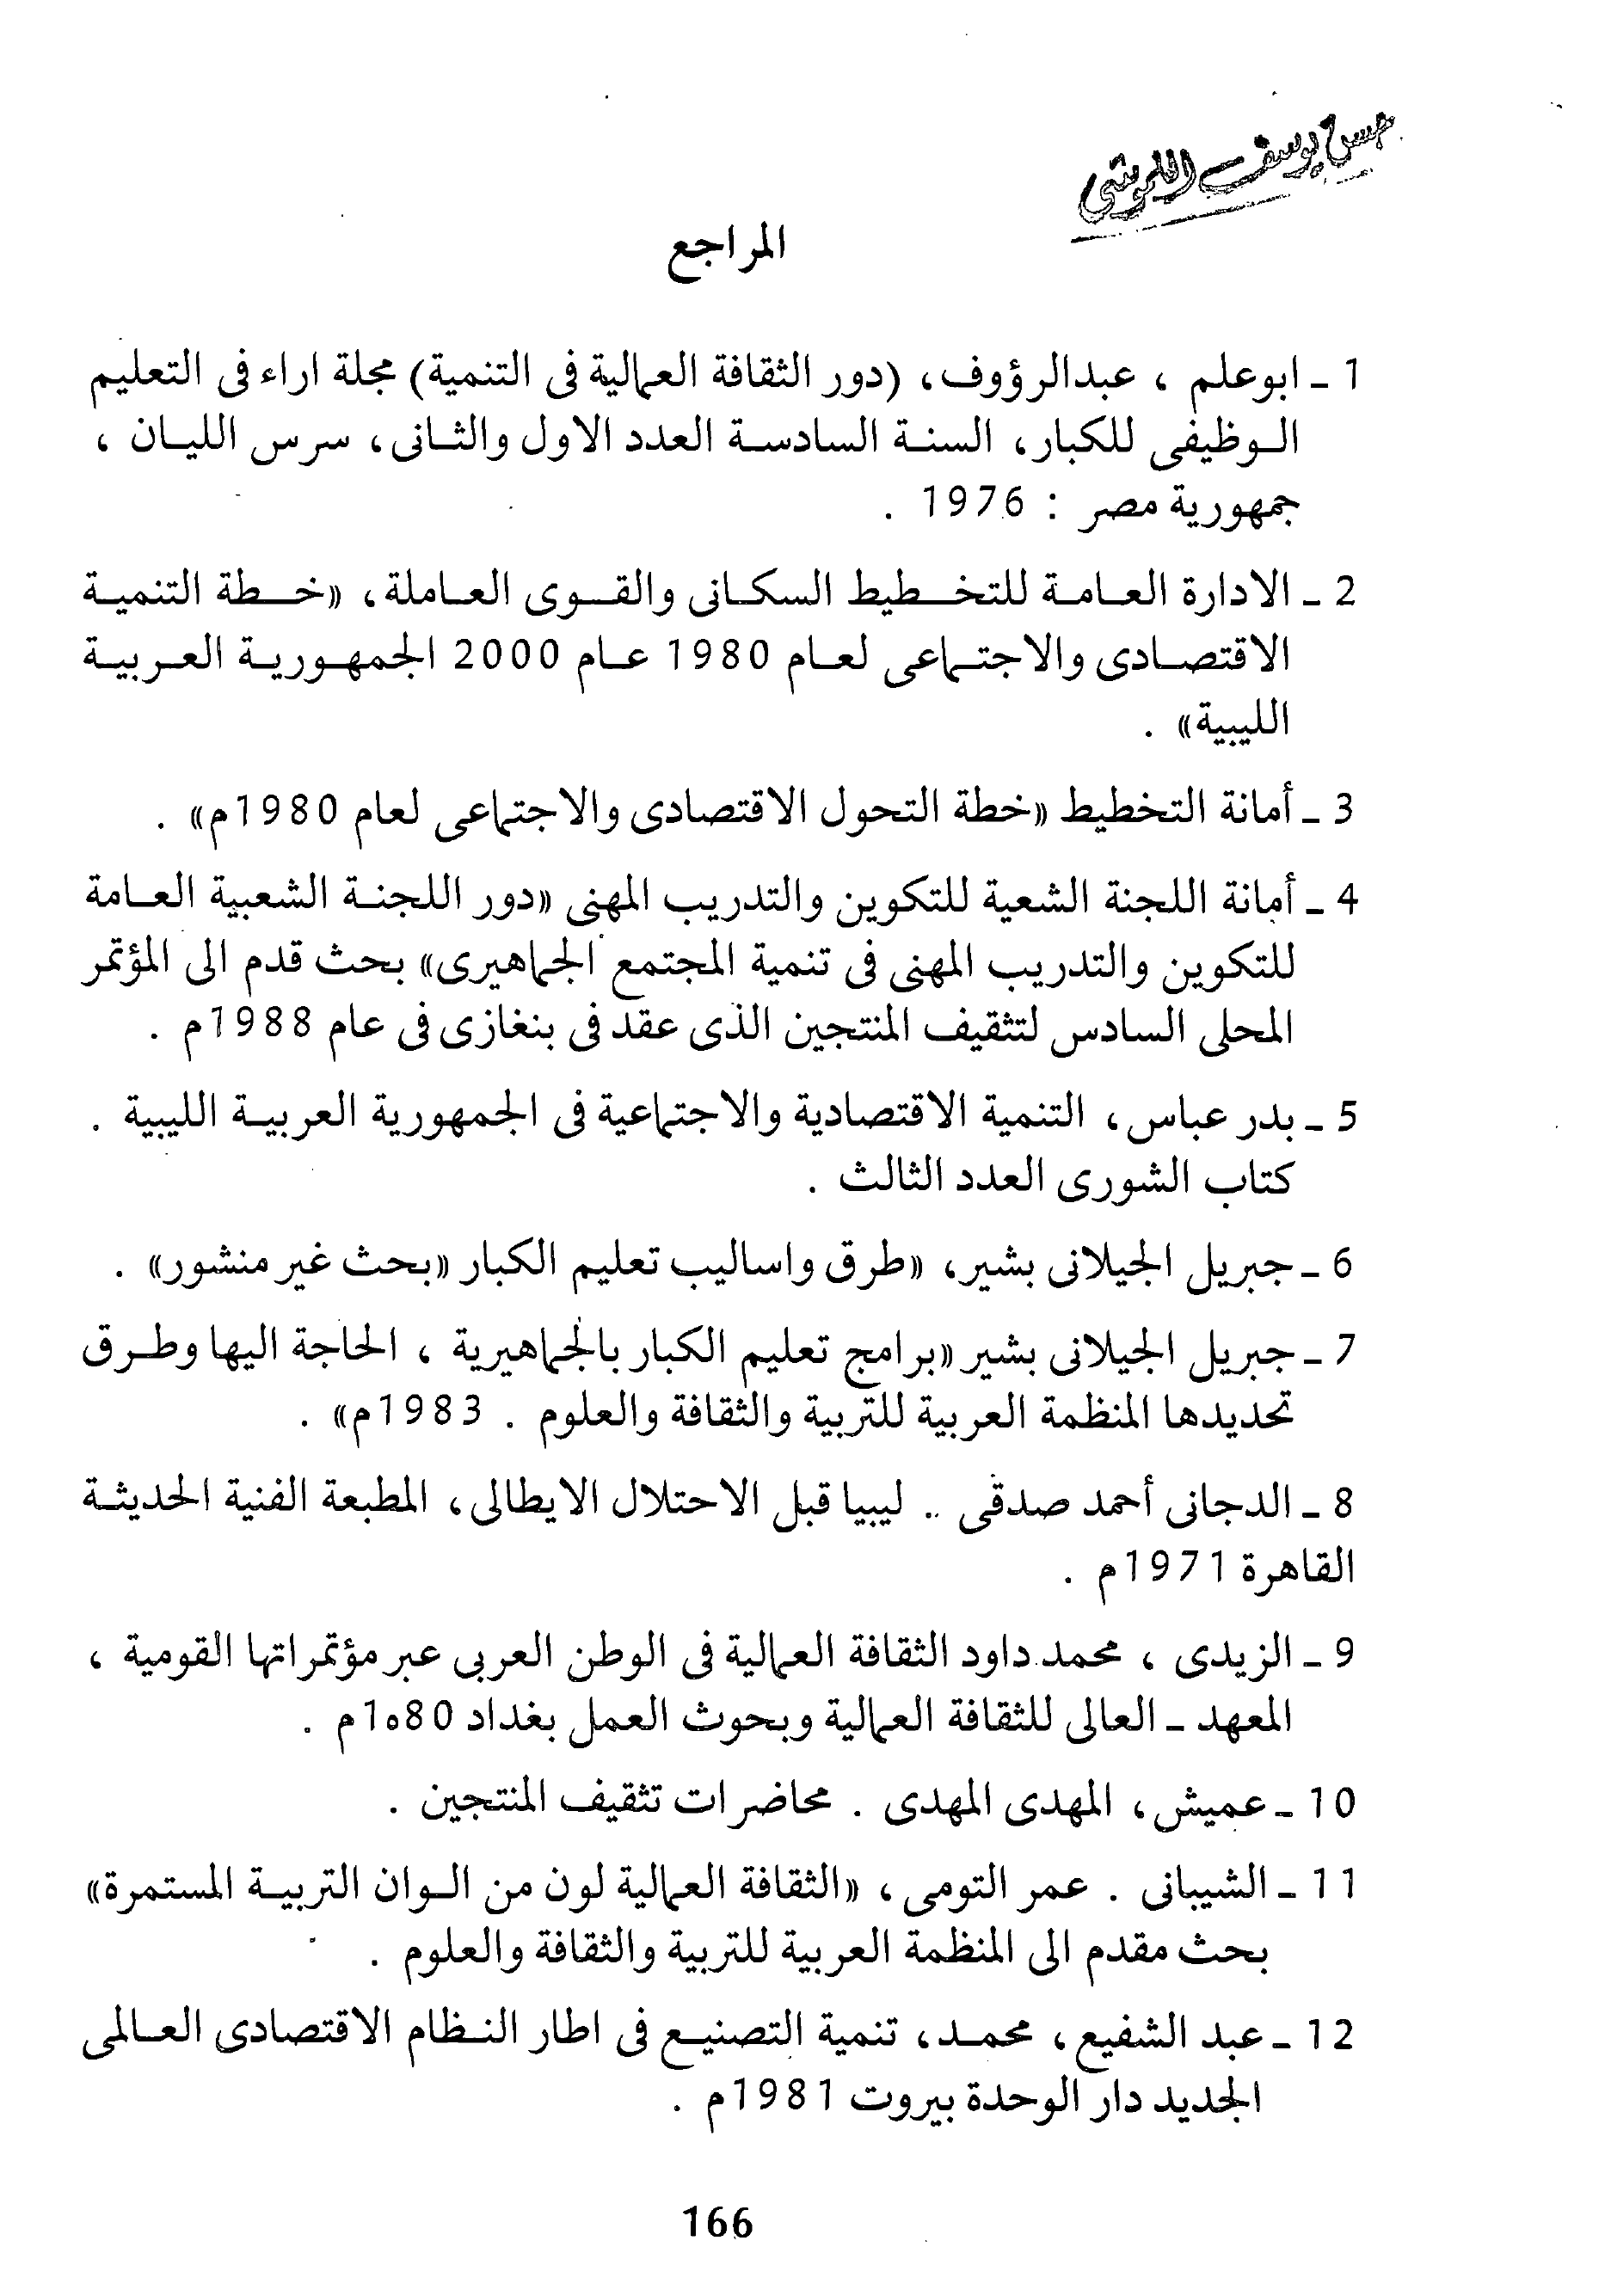 حسن يوسف
المراجع
1 ـ ابوعلم ، عبدالرؤوف، (دور الثقافة العمالية فى التنمية) مجلة اراء فى التعليم
الوظيفى للكبار، السنة السادسة العدد الاول والثانى، سرس الليان ،
جمهورية مصر : 1976 .
2 ـ الادارة العامة للتخطيط السكانى والقوى العاملة، «خطة التنمية
الاقتصادى والاجتماعى لعام 1980 عام 2000 الجمهورية العربية
الليبية» .
3 ـ أمانة التخطيط «خطة التحول الاقتصادى والاجتماعى لعام 1980م» .
4 ـ أمانة اللجنة الشعبية للتكوين والتدريب المهنى «دور اللجنة الشعبية العامة
للتكوين والتدريب المهنى فى تنمية المجتمع الجماهيرى» بحث قدم الى المؤتمر
المحلى السادس لتثقيف المنتجين الذى عقد فى بنغازى فى عام 1988م .
5 ـ بدر عباس، التنمية الاقتصادية والاجتماعية فى الجمهورية العربية الليبية .
كتاب الشورى العدد الثالث .
6 ـ جبريل الجيلانى بشير، «طرق واساليب تعليم الكبار «بحث غير منشور» .
7 ـ جبريل الجيلانى بشير «برامج تعليم الكبار بالجماهيرية ، الحاجة اليها وطرق
تحديدها المنظمة العربية للتربية والثقافة والعلوم . 1983م» .
8 ـ الدجانى أحمد صدقى .. ليبيا قبل الاحتلال الايطالى، المطبعة الفنية الحديثة
القاهرة 1971م .
9 ـ الزيدى ، محمد داود الثقافة العمالية فى الوطن العربى عبر مؤتمراتها القومية ،
المعهد ـ العالى للثقافة العمالية وبحوث العمل بغداد 1o80م .
10 ـ عميش، المهدى المهدى . محاضرات تثقيف المنتجين .
11 ـ الشيبانى . عمر التومى، «الثقافة العمالية لون من الوان التربية المستمرة»
بحث مقدم الى المنظمة العربية للتربية والثقافة والعلوم .
12 ـ عبد الشفيع، محمد، تنمية التصنيع فى اطار النظام الاقتصادى العالمى
الجديد دار الوحدة بيروت 1981م .
166